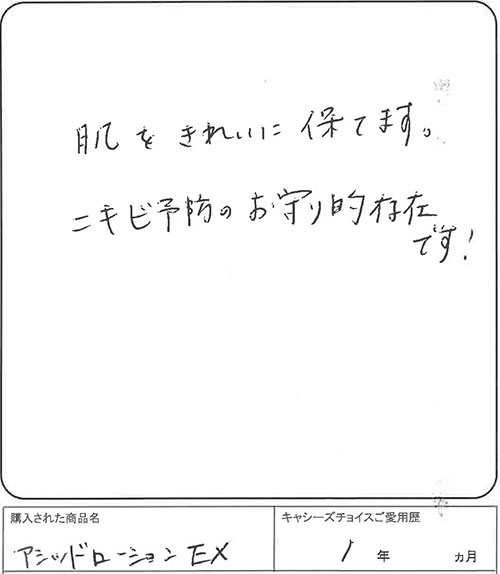 肌をきれいに保てます。
ニキビ予防のお守り的存在
です!
購入された商品名
アシッドローションEX
キャシーズチョイスご愛用歴
1年 ヵ月